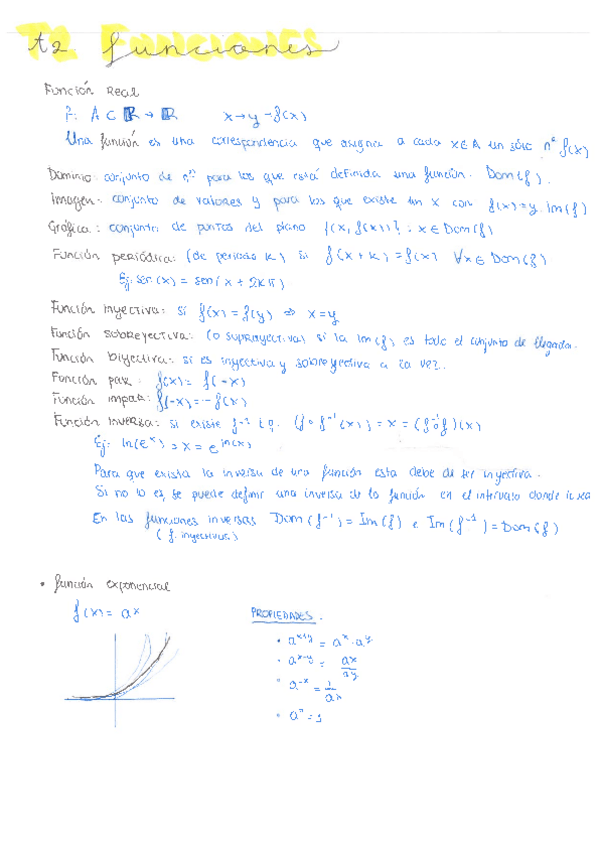 t2 funciones
Función Real
f: A ⊂ ℝ → ℝ x → y = f(x)
Una función es una correspondencia que asigna a cada x ∈ A un sólo nº f(x)
Dominio: conjunto de nºs para los que está definida una función. Dom(f).
Imagen: conjunto de valores y para los que existe un x con f(x) = y. Im(f)
Gráfica: conjunto de puntos del plano {(x, f(x))} : x ∈ Dom(f)
Función periódica: (de periodo k) si f(x+k) = f(x) ∀x ∈ Dom(f)
Ej: sen(x) = sen(x + 2kπ)
Función inyectiva: si f(x) = f(y) ⇒ x = y
Función sobreyectiva: (o suprayectiva) si la Im(f) es todo el conjunto de llegada.
Función biyectiva: si es inyectiva y sobreyectiva a la vez.
Función par: f(x) = f(-x)
Función impar: f(-x) = -f(x)
Función inversa: si existe f⁻¹ t.q. (f∘f⁻¹(x)) = x = (f⁻¹∘f)(x)
Ej: ln(eˣ) = x = e^ln(x)
Para que exista la inversa de una función esta debe de ser inyectiva.
Si no lo es, se puede definir una inversa de la función en el intervalo donde lo sea
En las funciones inversas Dom(f⁻¹) = Im(f) e Im(f⁻¹) = Dom(f)
(f. inyectivas)
• función exponencial
f(x) = aˣ PROPIEDADES.
• a^x+y = aˣ · aʸ
• a^x-y = aˣ/aʸ
• a^-x = 1/aˣ
• a° = 1